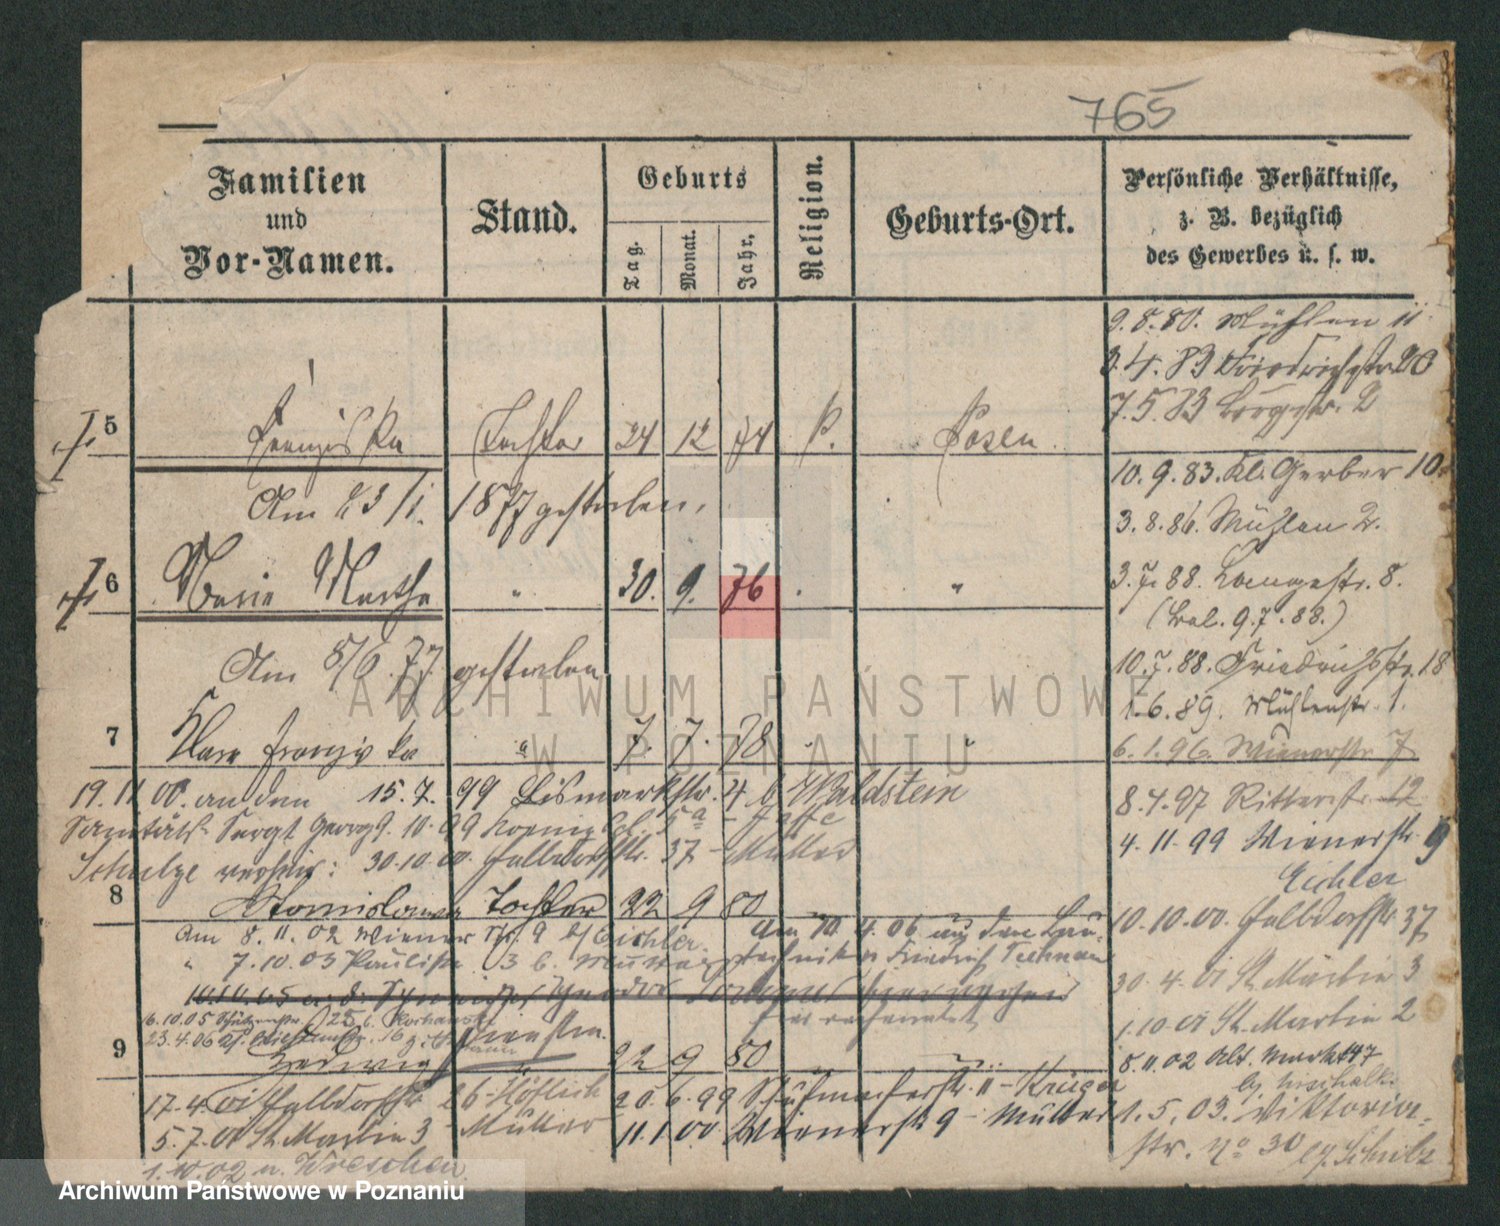 765
Familien
und
Vor-Namen.
Stand.
Geburts
Tag.
Monat.
Jahr,
Religion.
Geburts-Ort.
Persönliche Verhältnisse,
z. B. bezüglich
des Gewerbes u. s. w.
9.8.80. Mühlen 11
3.4.83 Friedrichstr. 20
7.5.83 Bergstr. 2
5 Franziska Tochter 24 12 74 k. Posen.
10.9.83. Kl. Gerber 10.
Am 23/1. 1877 gestorben.
3.8.86. Mühlen 2.
6 Marie Martha " 30. 9. 76 "
3.7.88. Langestr. 8.
9.7.88.)
Am 8/6.77 gestorben
10.7.88. Friedrichsstr. 18
1.6.89. Mühlenstr. 1.
7 Clara Franziska " 7. 7. 78 "
6.1.96. Wienerstr. 7
19.11.00. an den 15.7.99 Bismarckstr. 4 b Waldstein
8.4.97 Ritterstr. 12
Sanitäts Sergt Georg 9.10.99 5a - Jaffe
4.11.99 Wienerstr. 9
Schulze verheir: 30.10.00. Halldorfstr. 37 - Müller
Eichler
8 Stanislawa Tochter 22 9 80
10.10.00. Halldorfstr. 37
am 8.11.02 Wiener Str. 9 b/Eichler. am 10.4.06 an den Bau-
" 7.10.03 Paulistr. 3 b. techniker Friedrich
30.4.01 St. Martin 3
10.10.05
verheiratet
1.10.01 St. Martin 2
16.10.05 Schützenstr. 25 b.
23.4.06
9 Hedwig 22 9 80
8.11.02 Alt. Markt 47
17.4.01 Halldorfstr. 26 - Höflich 20.6.99 Schuhmacherstr. 11 - Krüger
1.5.03. Viktoria-
5.7.01 St. Martin 3 - Müller 11.1.00. Wienerstr. 9 - Müller
str. No 30 bg. Schulz
1.10.02 n. Wreschen
ARCHIWUM PAŃSTWOWE
W POZNANIU
Archiwum Państwowe w Poznaniu